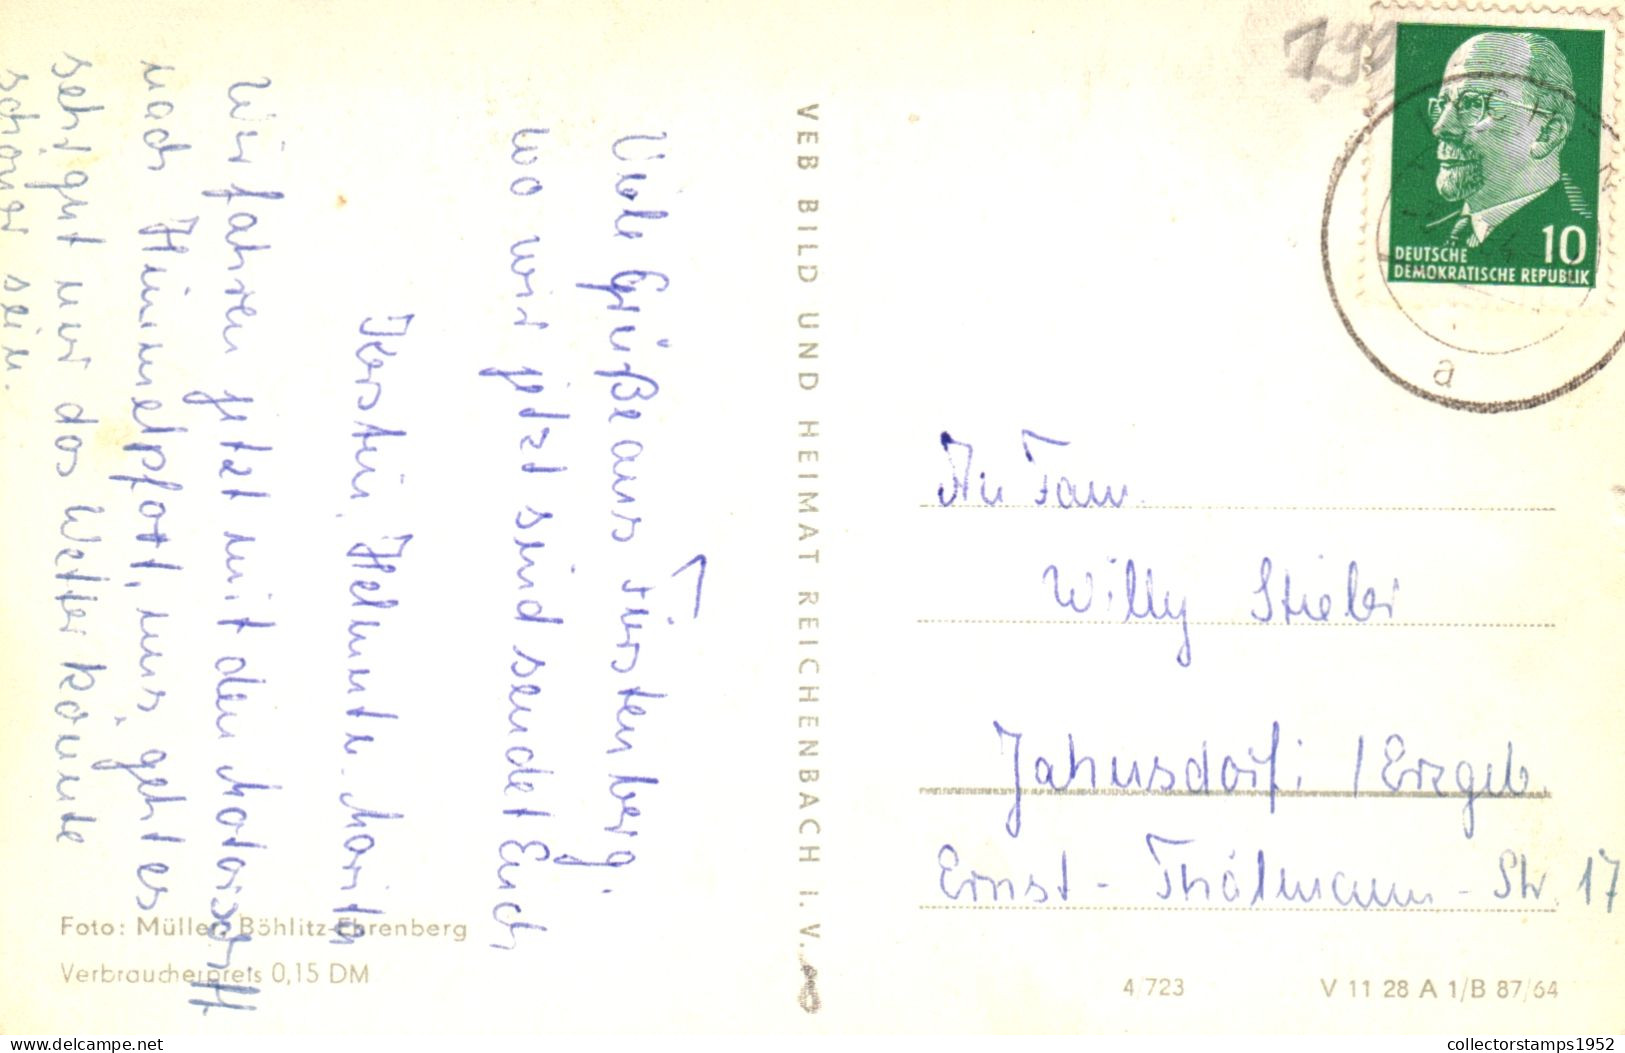 Viele Grüße aus Fürstenberg.
wo wir jetzt sind sendet Euch
Kerstin, Helmut u. Marita
Wir fahren jetzt mit den Motorschiff
nach Himmelpfort, uns geht es
sehr gut nur das Wetter könnte
schöner sein.
Foto: Müller, Böhlitz-Ehrenberg
Verbraucherpreis 0,15 DM
VEB BILD UND HEIMAT REICHENBACH I. V.
10
DEUTSCHE
DEMOKRATISCHE REPUBLIK
a
An Fam.
Willy Stieler
Jahnsdorf i /Erzgeb.
Ernst-Thälmann-Str. 17
4/723
V 11 28 A 1/B 87/64
collectorstamps1952